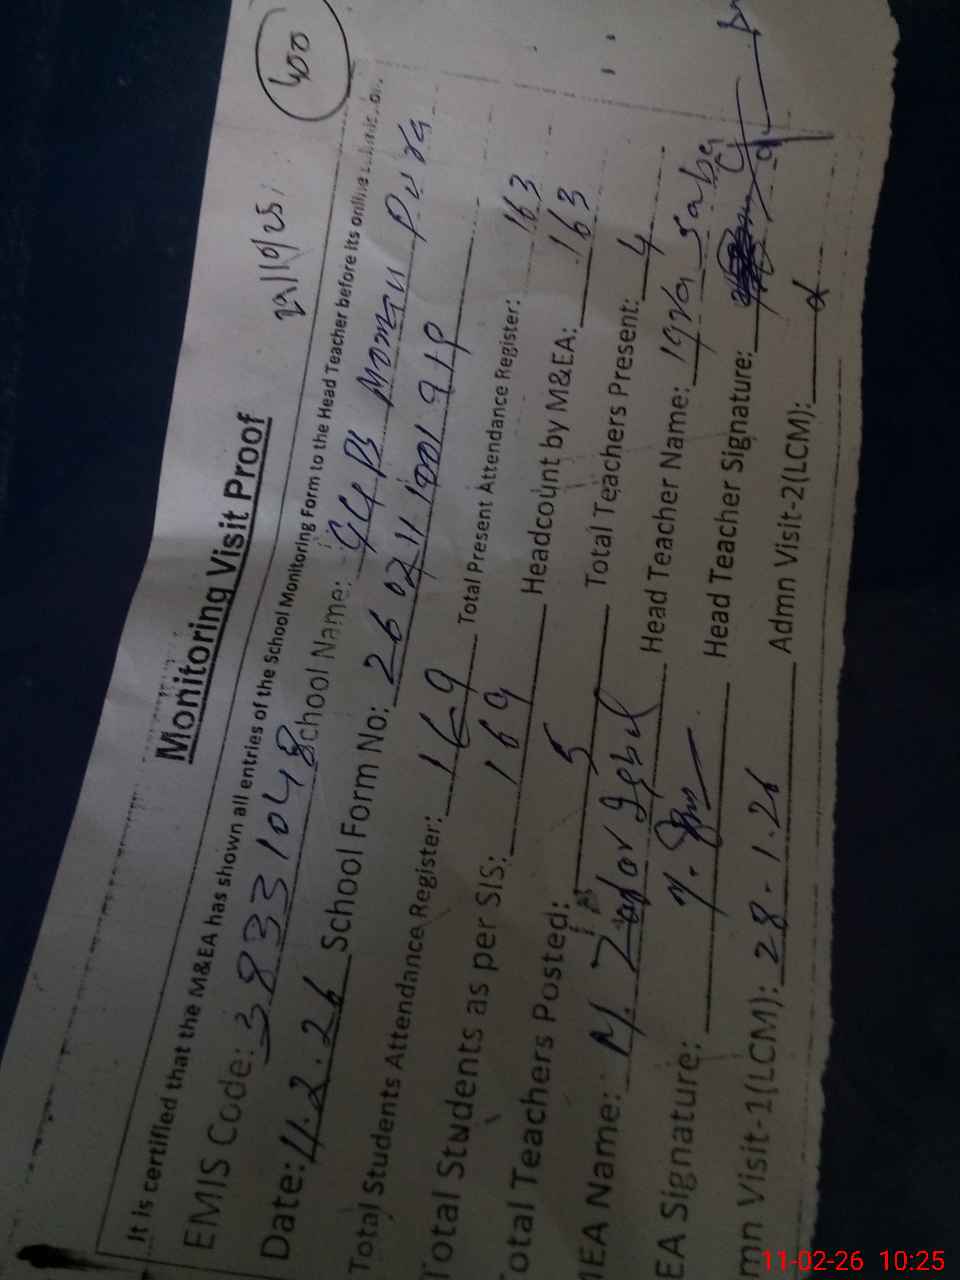 400
Monitoring Visit Proof
It is certified that the M&EA has shown all entries of the School Monitoring Form to the Head Teacher before its online
EMIS Code: 38331048 School Name: GGPS Momin Pura
Date: 4.2.26 School Form No:
Total Students Attendance Register: 169 Total Present Attendance Register: 163
Total Students as per SIS: 169 Headcount by M&EA: 163
otal Teachers Posted: 5 Total Teachers Present: 4
1EA Name: M. Zafar Iqbal Head Teacher Name: Iqra Saba
EA Signature: Head Teacher Signature:
mn Visit-1(LCM): 28.1.26 Admn Visit-2(LCM):
11-02-26 10:25